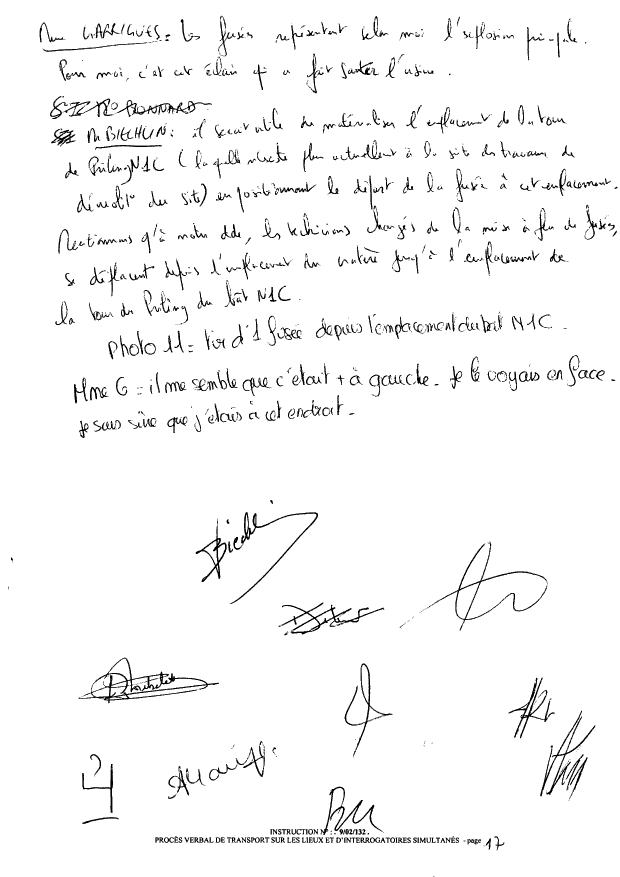 Mme GARRIGUES = Les fusées représentent selon moi l'explosion principale.
Pour moi, c'est cet éclair qui a fait sauter l'usine.
M BIECHLIN : il serait utile de matérialiser l'emplacement de la tour
de Prilling N1C (laquelle n'existe plus actuellement à la suite des travaux de
démolit° du site) en positionnant le départ de la fusée à cet emplacement.
Mentionnons qu'à notre dde, les techniciens chargés de la mise à feu de fusées,
se déplacent depuis l'emplacement du cratère jusqu'à l'emplacement de
la tour de Prilling du bât N1C.
Photo 11 = tir d'1 fusée depuis l'emplacement du bat N1C.
Mme G = il me semble que c'était + à gauche. Je le voyais en face.
Je suis sûre que j'étais à cet endroit.
INSTRUCTION N° : 9/02/132 .
PROCÈS VERBAL DE TRANSPORT SUR LES LIEUX ET D'INTERROGATOIRES SIMULTANÉS - page 17